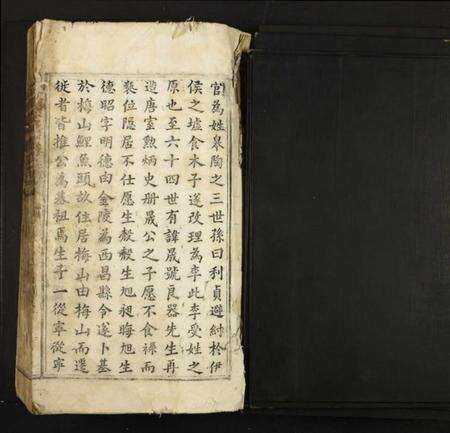 官為姓皋陶之三世孫曰利貞避紂於伊
侯之墟食木子遂改理為李此李受姓之
原也至六十四世有諱晟號良器先生再
造唐室勲炳史册晟公之子愿不食祿而
襲位隱居不仕愿生殼殼生旭昶晦旭生
德昭字明德由金陵為西昌縣令遂卜基
於梅山鯉魚頭故住居梅山由梅山而遷
徙者皆推公為基祖焉生子一從寧從寧